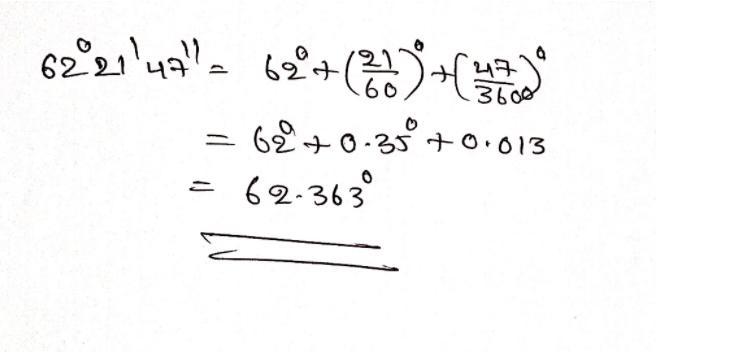 62°21'47'' = 62° + (21/60)° + (47/3600)°
= 62° + 0.35° + 0.013
= 62.363°